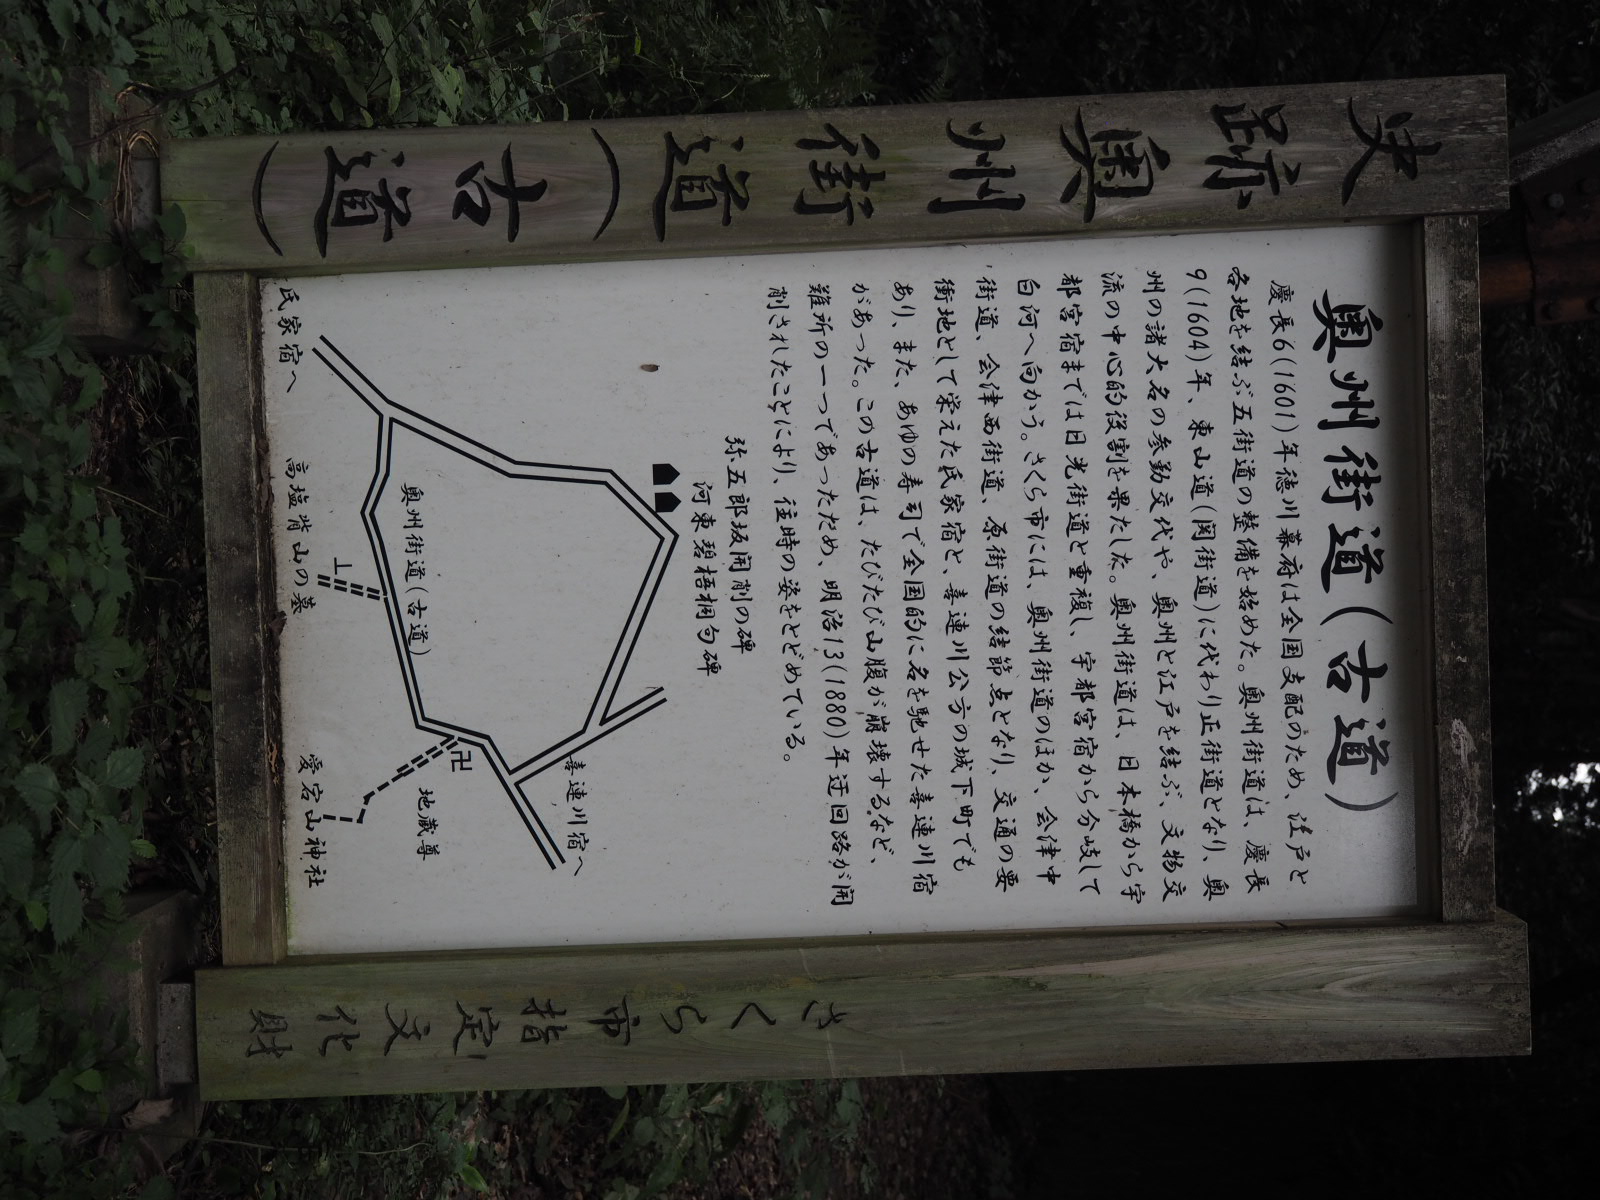 史跡奥州街道(古道)
奥州街道(古道)
慶長6(1601)年徳川幕府は全国支配のため、江戸と
各地を結ぶ五街道の整備を始めた。奥州街道は、慶長
9(1604)年、東山道(関街道)に代わり正街道となり、奥
州の諸大名の参勤交代や、奥州と江戸を結ぶ、文物交
流の中心的役割を果たした。奥州街道は、日本橋から宇
都宮宿までは日光街道と重複し、宇都宮宿から分岐して
白河へ向かう。さくら市には、奥州街道のほか、会津中
街道、会津西街道、原街道の結節点となり、交通の要
衝地として栄えた氏家宿と、喜連川公方の城下町でも
あり、また、あゆの寿司で全国的に名を馳せた喜連川宿
があった。この古道は、たびたび山腹が崩壊するなど、
難所の一つであったため、明治13(1880)年迂回路が開
削されたことにより、往時の姿をとどめている。
弥五郎坂開削の碑
河東碧梧桐句碑
喜連川宿へ
奥州街道(古道)
卍
地蔵尊
氏家宿へ
高塩背山の墓
愛宕山神社
さくら市指定文化財